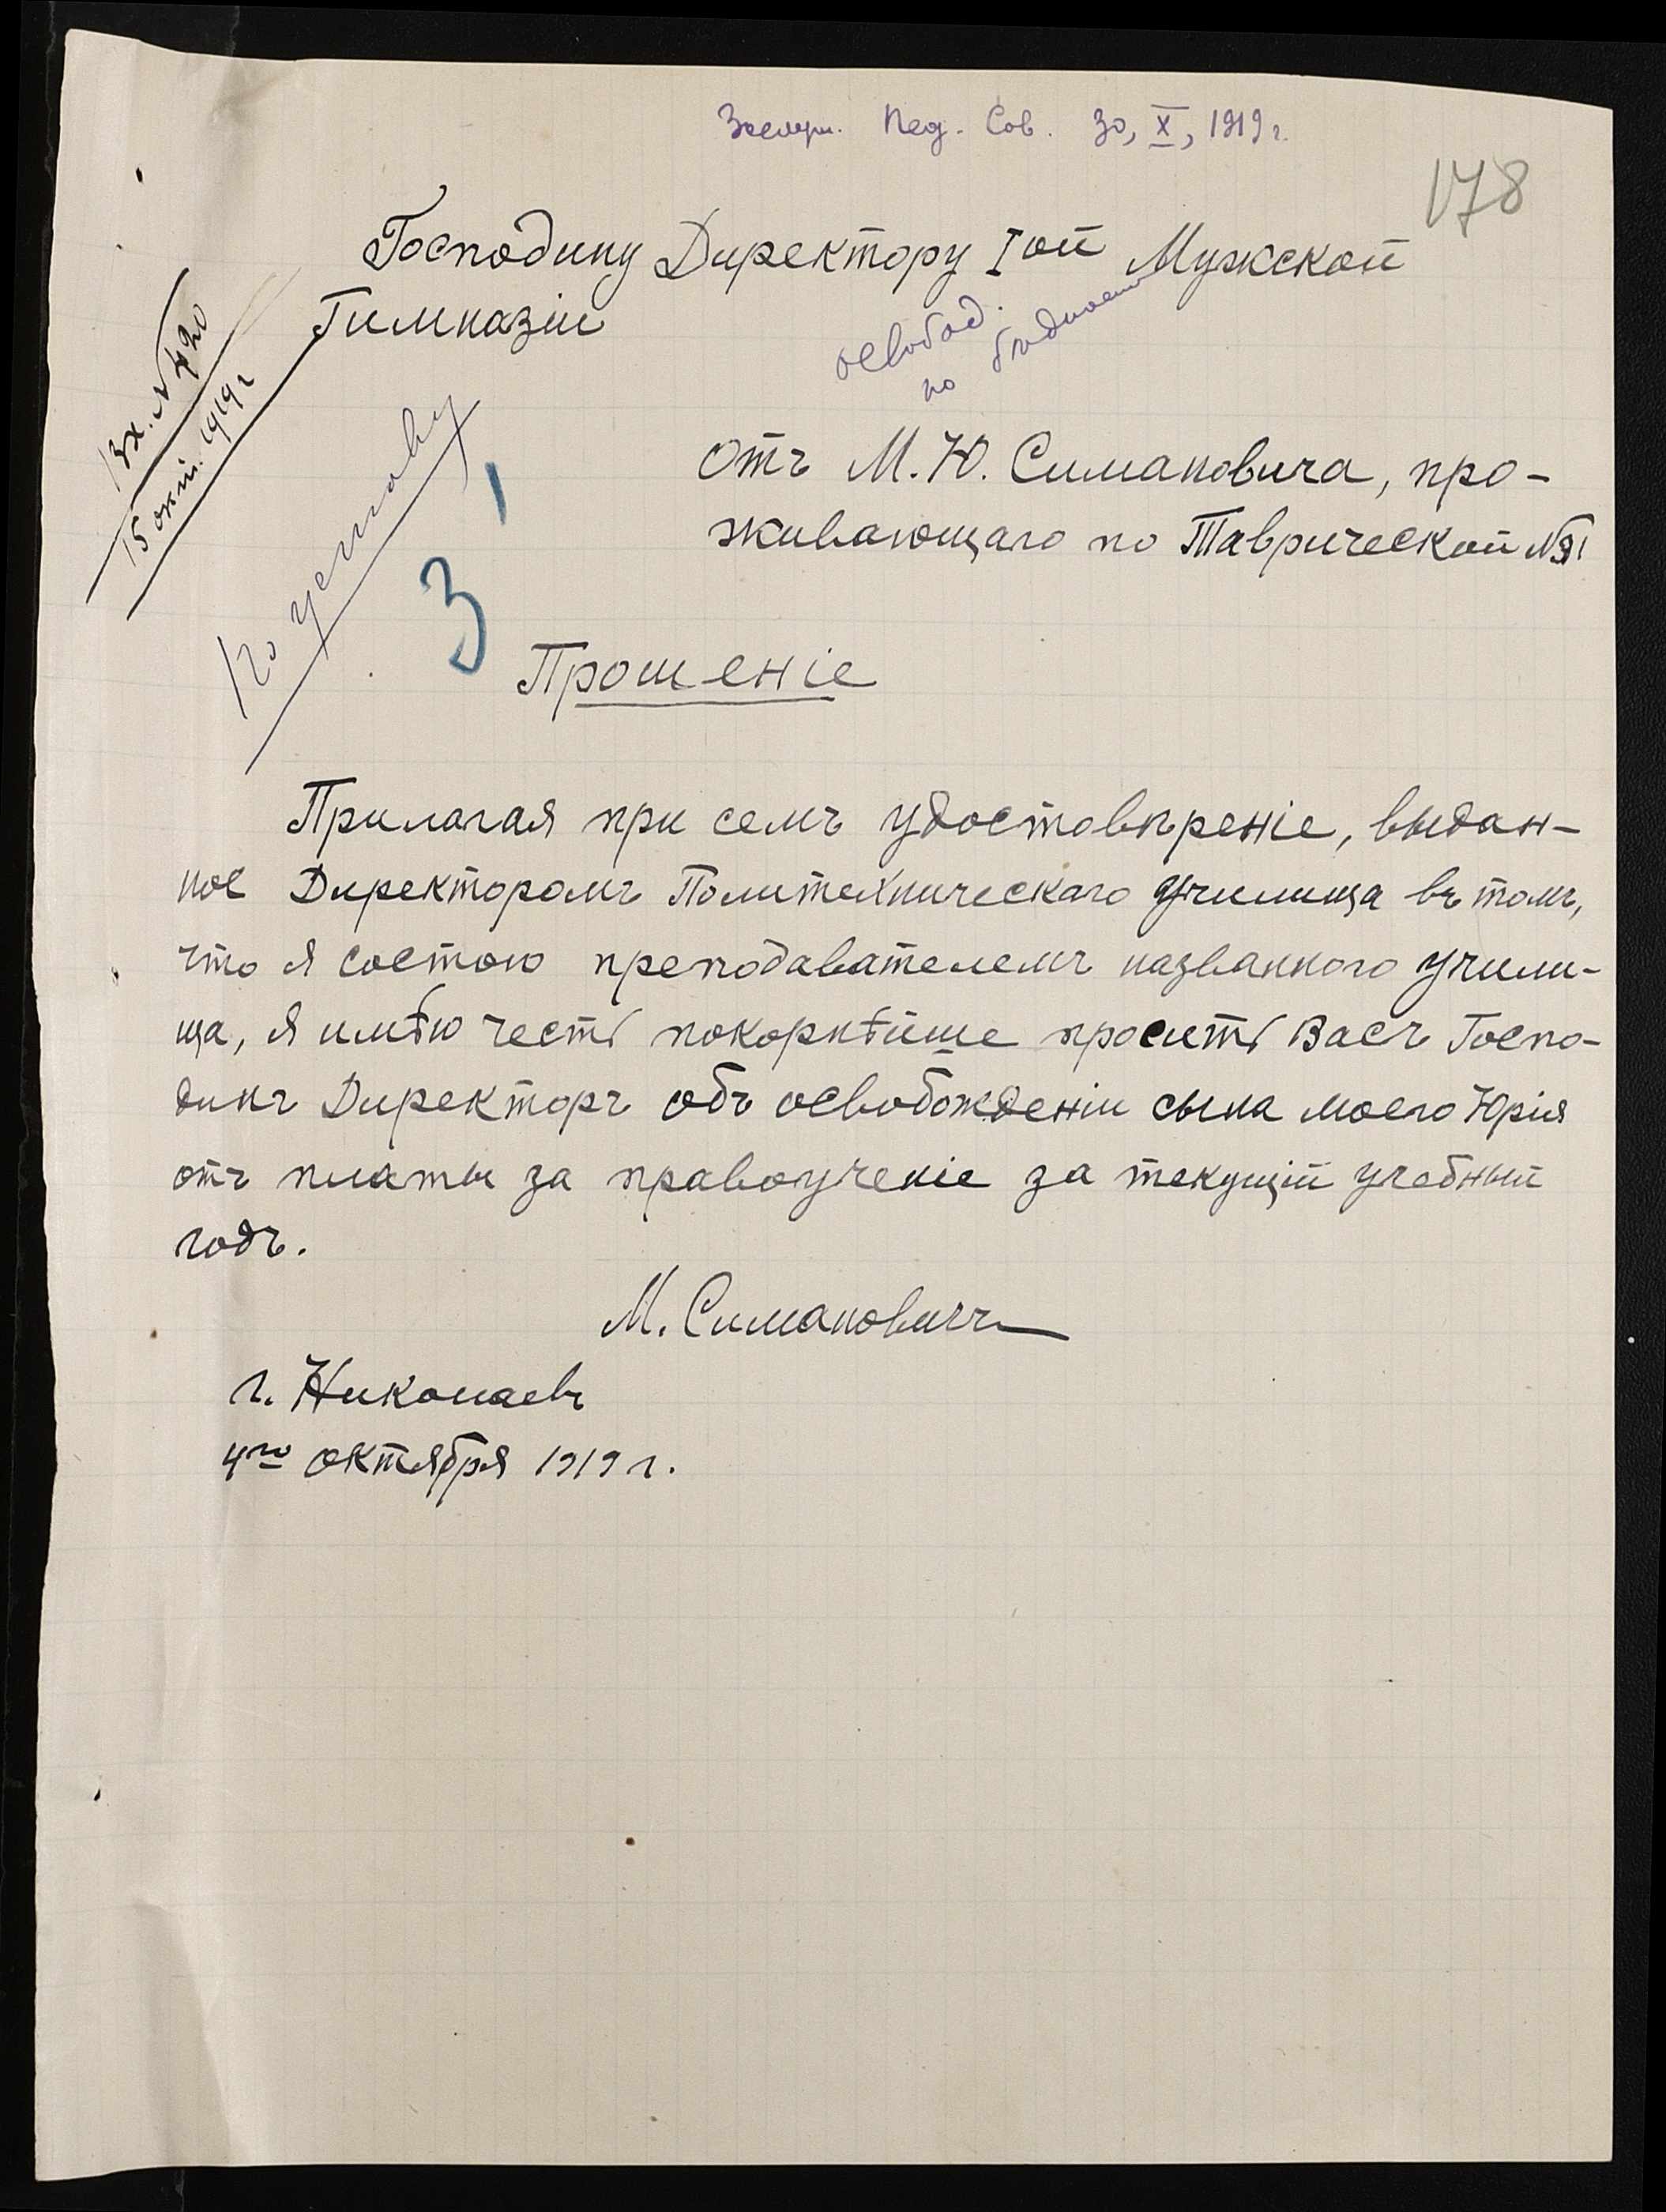 Пед. Сов. 30, X, 1919 г.
178
Господину Директору Iой Мужской
Гимназіи
освобод.
по бѣдности
Вх. № 420
15 окт. 1919 г
По уставу
1
3
отъ М. Ю. Симановича, про-
живающаго по Таврической №
Прошеніе
Прилагая при семъ удостовѣреніе, выдан-
ное Директоромъ Политехническаго училища въ томъ,
что я состою преподавателемъ названного учили-
ща, я имѣю честь покорнѣйше просить Васъ Госпо-
динъ Директоръ объ освобожденіи сына моего Юрія
отъ платы за правоученіе за текущій учебный
годъ.
М. Симановичъ
г. Николаевъ
4го октября 1919 г.